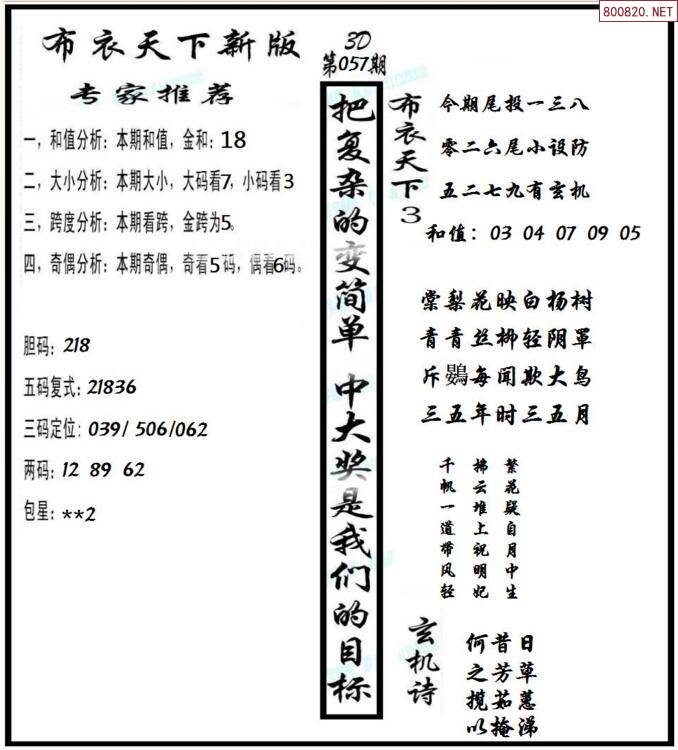 800820.NET
布衣天下新版
专家推荐
一，和值分析：本期和值，金和：18
二，大小分析：本期大小，大码看7，小码看3
三，跨度分析：本期看跨，金跨为5。
四，奇偶分析：本期奇偶，奇看5码，偶看6码。
胆码：218
五码复式：21836
三码定位：039/ 506/062
两码：12 89 62
包星：**2
3D
第057期
把复杂的变简单 中大奖是我们的目标
布衣天下3
今期尾投一三八
零二六尾小设防
五二七九有玄机
和值：03 04 07 09 05
棠梨花映白杨树
青青丝柳轻阴罩
斥鷃每闻欺大鸟
三五年时三五月
繁花疑自月中生
拂云堆上祝明妃
千帆一道带风轻
玄机诗
何昔日
之芳草
揽茹蕙
以掩涕